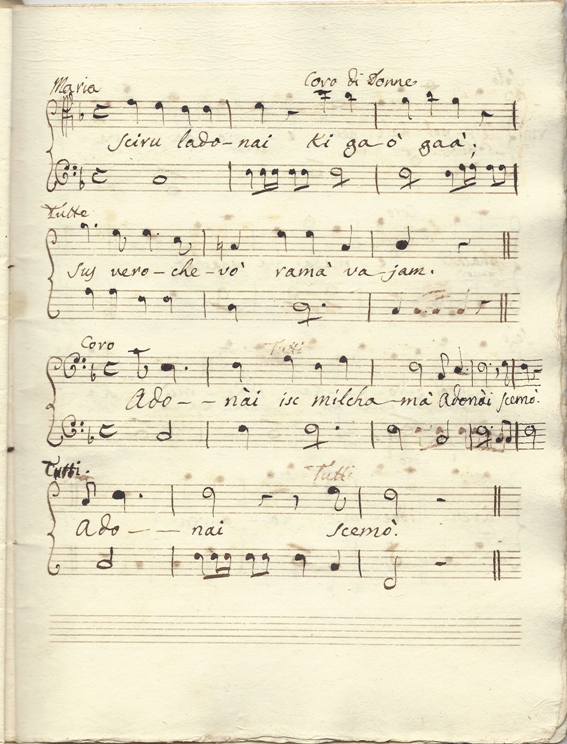 Maria Coro di Donne
Sciru lado-nai Ki ga-ò gaà;
Tutte
Sus vero-che-vò ramà va-jam.
Coro Tutti
Ado--nài isc milcha-mà Adonài scemò.
Tutti. Tutti
Ado---nai scemò.